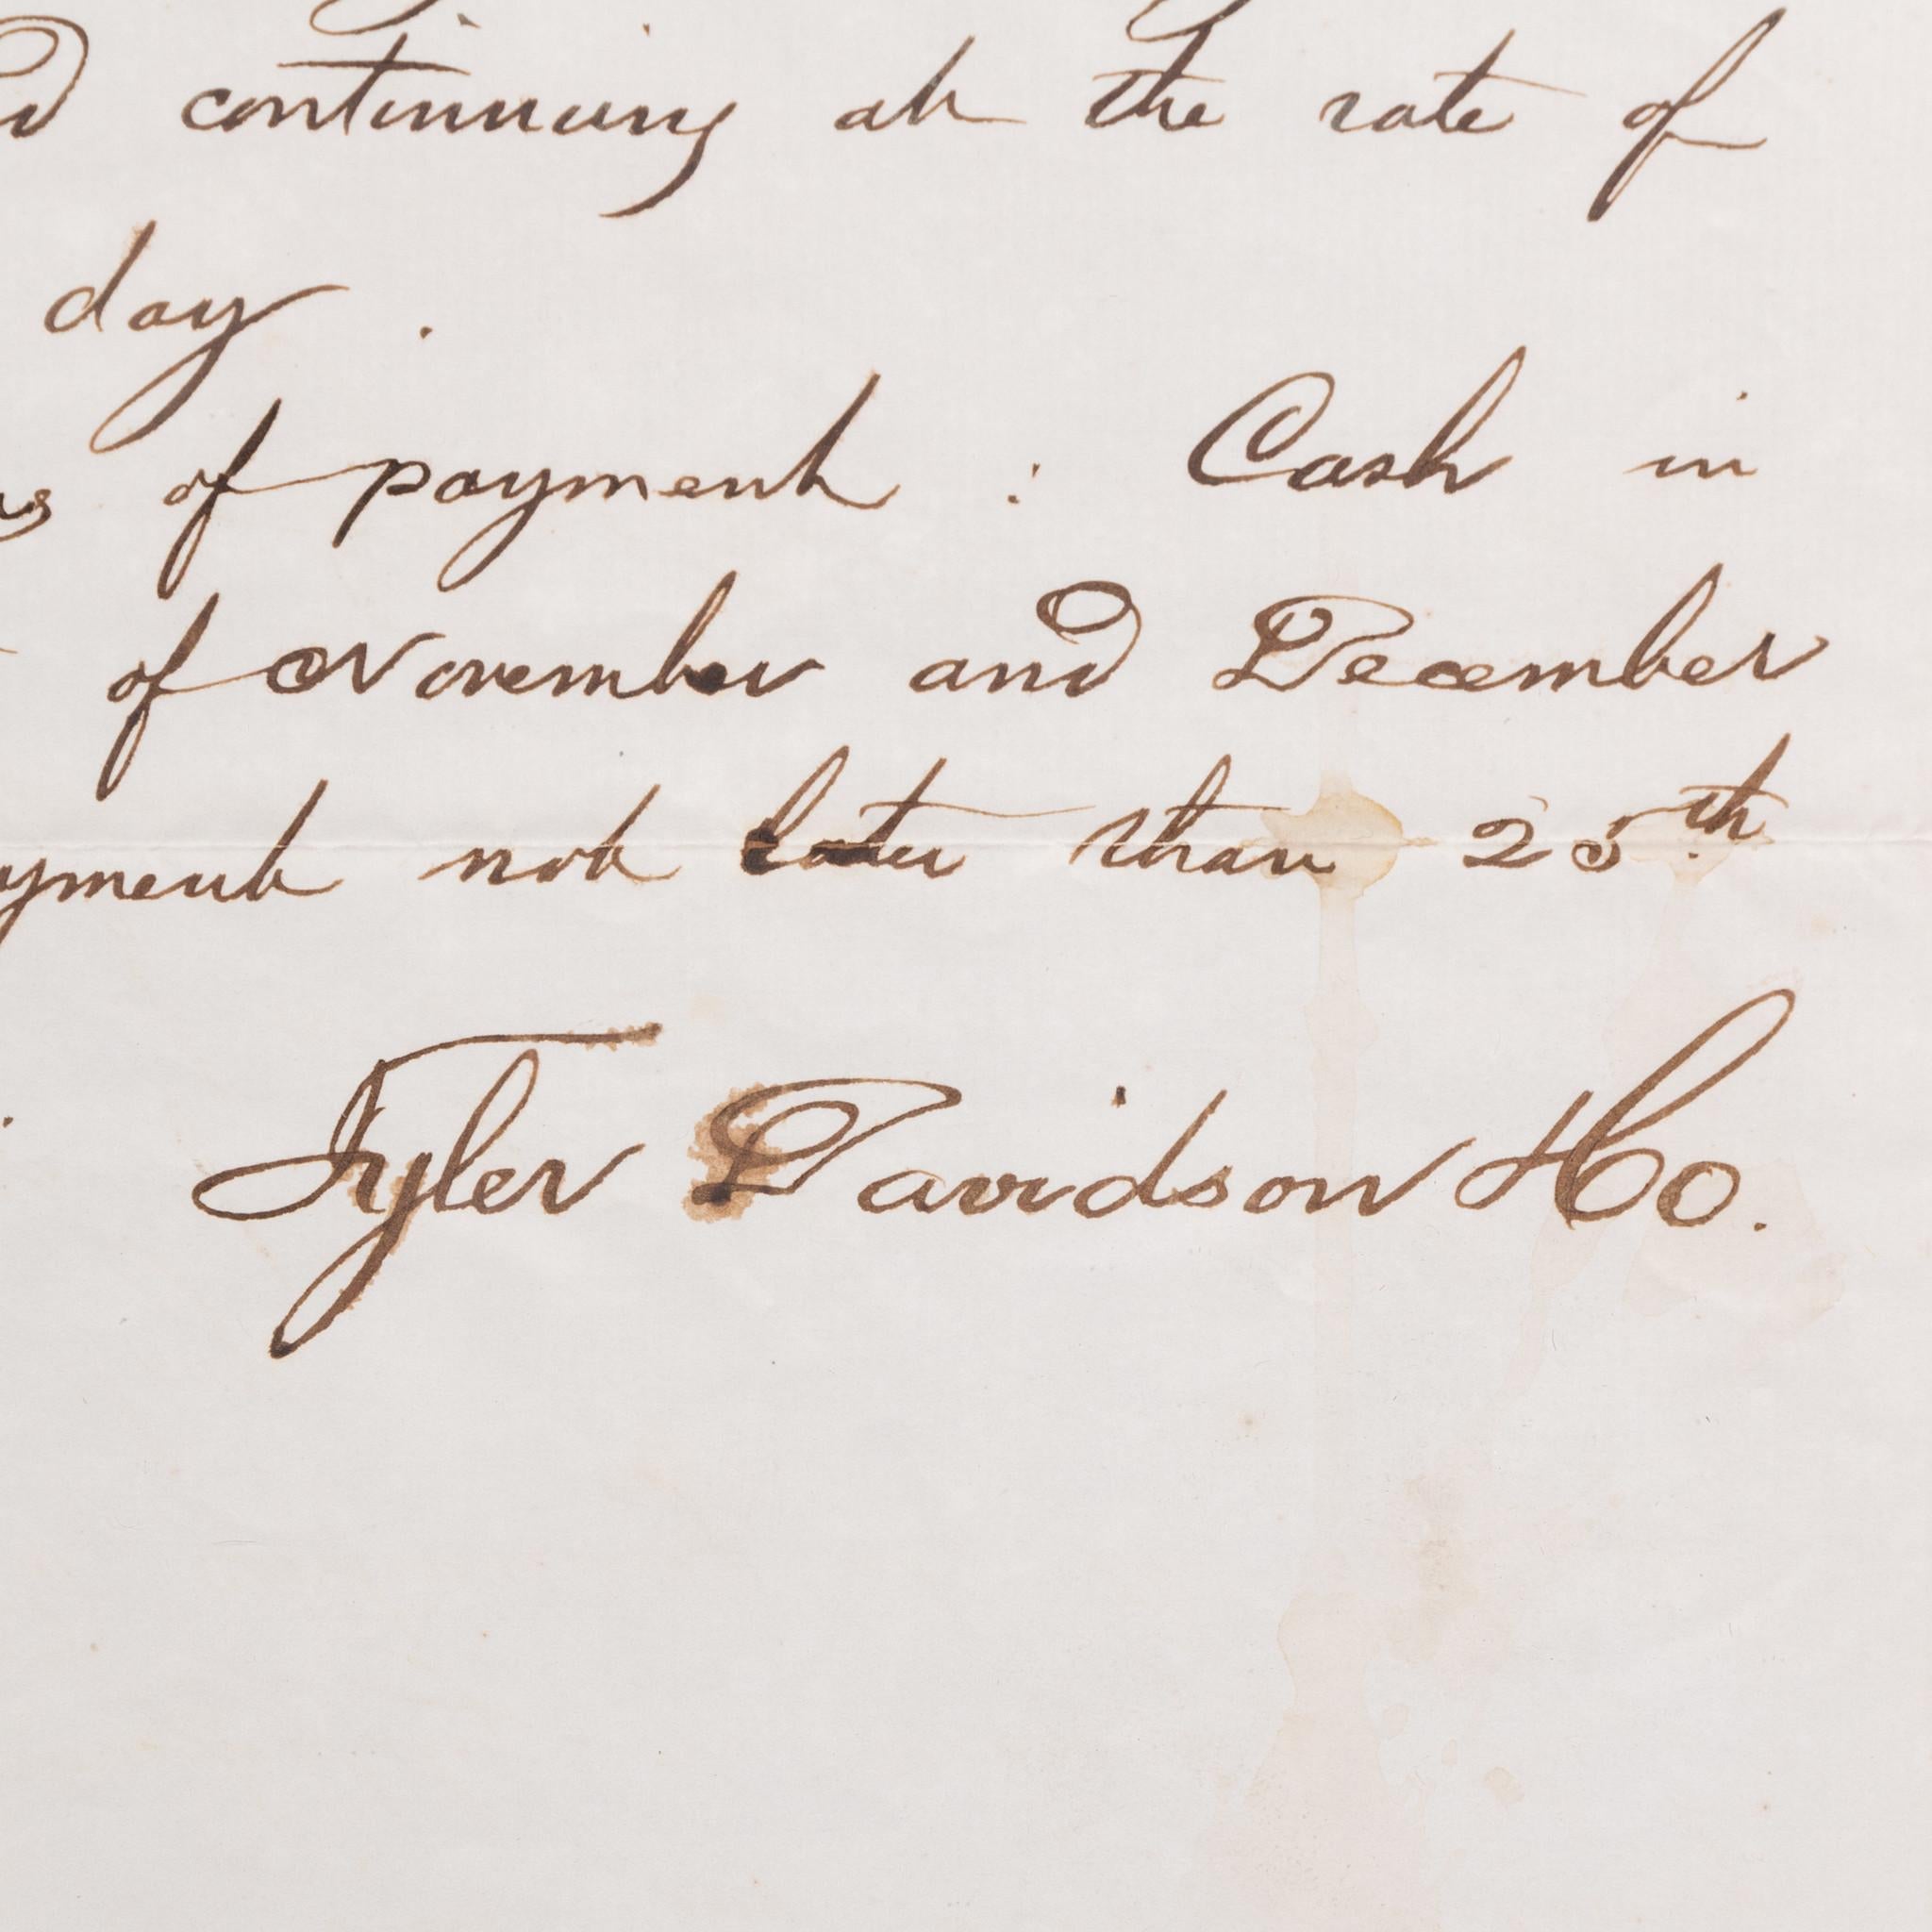 continuing at the rate of
day.
of payment : Cash in
of November and December
yment not later than 25th
Tyler Davidson & Co.